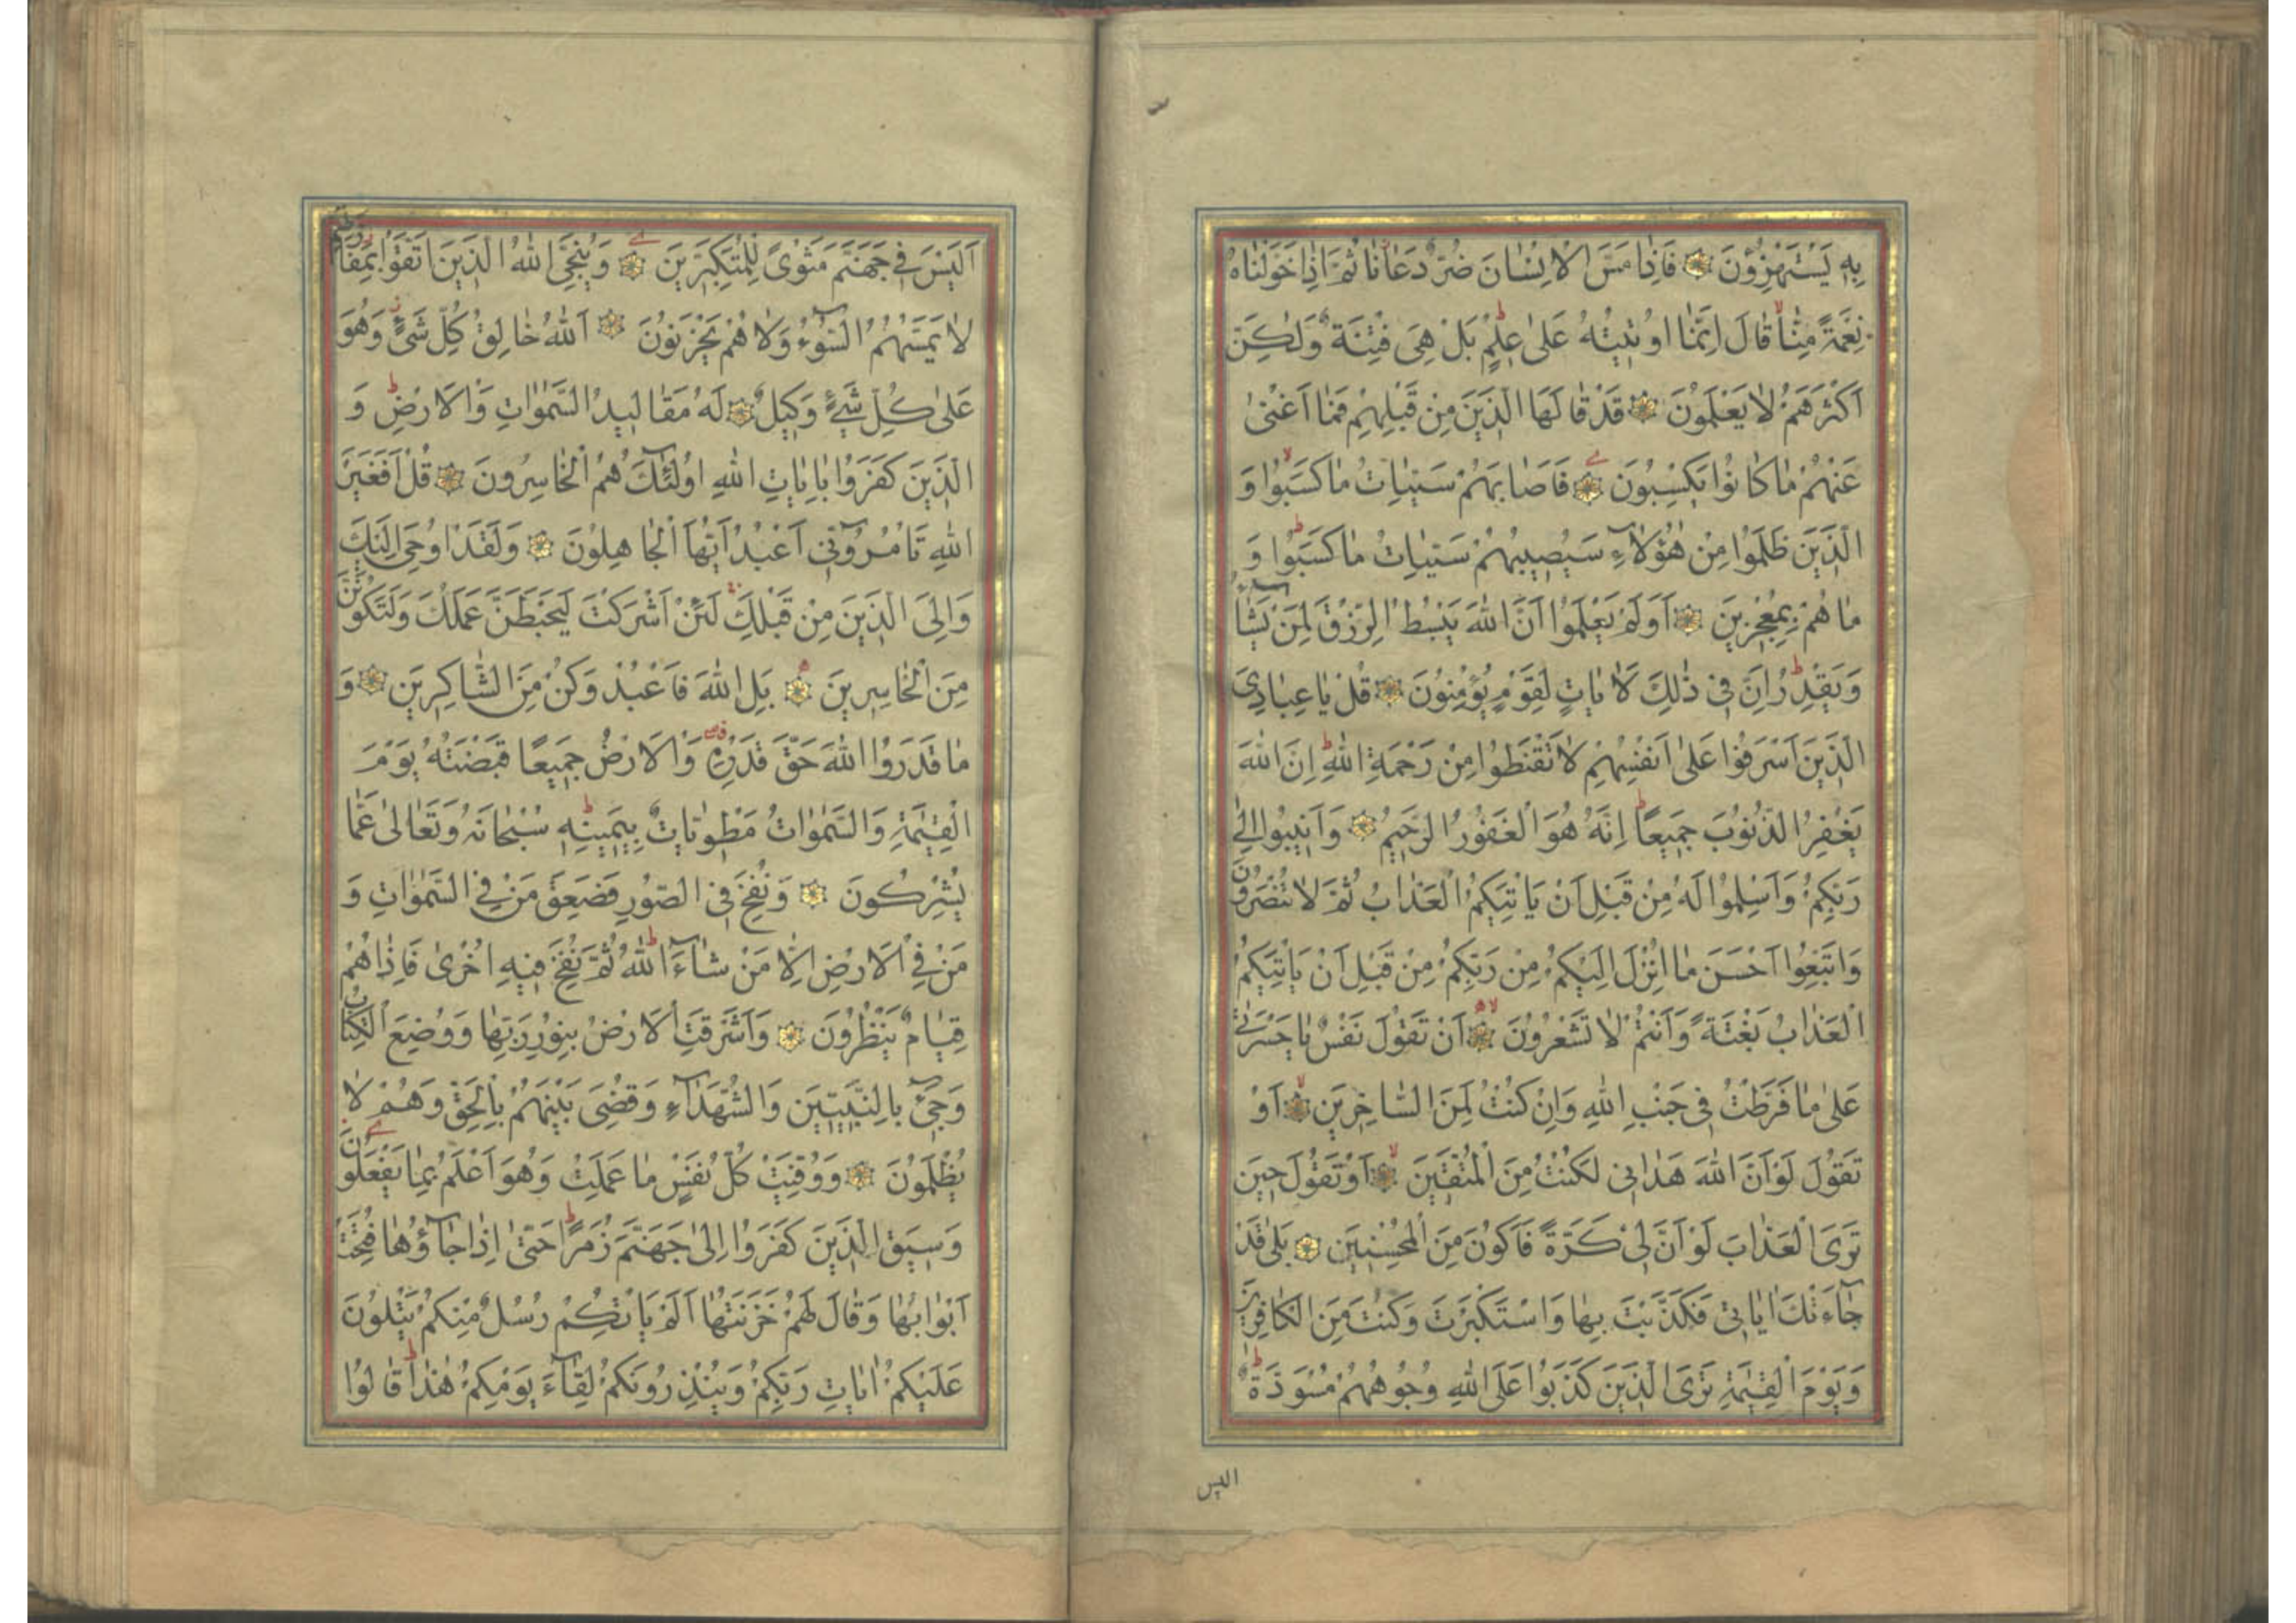 بِهِ يَسْتَهْزِؤُنَ فَاِذَا مَسَّ الْاِنْسَانَ ضُرٌّ دَعَانَا ثُمَّ اِذَا خَوَّلْنَاهُ
نِعْمَةً مِنَّا قَالَ اِنَّمَا اُوتِيتُهُ عَلٰى عِلْمٍ بَلْ هِيَ فِتْنَةٌ وَلٰكِنَّ
اَكْثَرَهُمْ لَا يَعْلَمُونَ قَدْ قَالَهَا الَّذِينَ مِنْ قَبْلِهِمْ فَمَا اَغْنٰى
عَنْهُمْ مَا كَانُوا يَكْسِبُونَ فَاَصَابَهُمْ سَيِّئَاتُ مَا كَسَبُوا وَ
الَّذِينَ ظَلَمُوا مِنْ هٰؤُلَاءِ سَيُصِيبُهُمْ سَيِّئَاتُ مَا كَسَبُوا وَ
مَا هُمْ بِمُعْجِزِينَ اَوَلَمْ يَعْلَمُوا اَنَّ اللّٰهَ يَبْسُطُ الرِّزْقَ لِمَنْ يَشَاءُ
وَيَقْدِرُ اِنَّ فِي ذٰلِكَ لَاٰيَاتٍ لِقَوْمٍ يُؤْمِنُونَ قُلْ يَا عِبَادِيَ
الَّذِينَ اَسْرَفُوا عَلٰى اَنْفُسِهِمْ لَا تَقْنَطُوا مِنْ رَحْمَةِ اللّٰهِ اِنَّ اللّٰهَ
يَغْفِرُ الذُّنُوبَ جَمِيعًا اِنَّهُ هُوَ الْغَفُورُ الرَّحِيمُ وَاَنِيبُوا اِلٰى
رَبِّكُمْ وَاَسْلِمُوا لَهُ مِنْ قَبْلِ اَنْ يَاْتِيَكُمُ الْعَذَابُ ثُمَّ لَا تُنْصَرُونَ
وَاتَّبِعُوا اَحْسَنَ مَا اُنْزِلَ اِلَيْكُمْ مِنْ رَبِّكُمْ مِنْ قَبْلِ اَنْ يَاْتِيَكُمُ
الْعَذَابُ بَغْتَةً وَاَنْتُمْ لَا تَشْعُرُونَ اَنْ تَقُولَ نَفْسٌ يَا حَسْرَتٰى
عَلٰى مَا فَرَّطْتُ فِي جَنْبِ اللّٰهِ وَاِنْ كُنْتُ لَمِنَ السَّاخِرِينَ اَوْ
تَقُولَ لَوْ اَنَّ اللّٰهَ هَدَانِي لَكُنْتُ مِنَ الْمُتَّقِينَ اَوْ تَقُولَ حِينَ
تَرَى الْعَذَابَ لَوْ اَنَّ لِي كَرَّةً فَاَكُونَ مِنَ الْمُحْسِنِينَ بَلٰى قَدْ
جَاءَتْكَ اٰيَاتِي فَكَذَّبْتَ بِهَا وَاسْتَكْبَرْتَ وَكُنْتَ مِنَ الْكَافِرِينَ
وَيَوْمَ الْقِيٰمَةِ تَرَى الَّذِينَ كَذَبُوا عَلَى اللّٰهِ وُجُوهُهُمْ مُسْوَدَّةٌ
اليس
اَلَيْسَ فِي جَهَنَّمَ مَثْوًى لِلْمُتَكَبِّرِينَ وَيُنَجِّي اللّٰهُ الَّذِينَ اتَّقَوْا بِمَفَازَتِهِمْ
لَا يَمَسُّهُمُ السُّوءُ وَلَا هُمْ يَحْزَنُونَ اَللّٰهُ خَالِقُ كُلِّ شَيْءٍ وَهُوَ
عَلٰى كُلِّ شَيْءٍ وَكِيلٌ لَهُ مَقَالِيدُ السَّمٰوَاتِ وَالْاَرْضِ وَ
الَّذِينَ كَفَرُوا بِاٰيَاتِ اللّٰهِ اُولٰئِكَ هُمُ الْخَاسِرُونَ قُلْ اَفَغَيْرَ
اللّٰهِ تَاْمُرُونِّي اَعْبُدُ اَيُّهَا الْجَاهِلُونَ وَلَقَدْ اُوحِيَ اِلَيْكَ
وَاِلَى الَّذِينَ مِنْ قَبْلِكَ لَئِنْ اَشْرَكْتَ لَيَحْبَطَنَّ عَمَلُكَ وَلَتَكُونَنَّ
مِنَ الْخَاسِرِينَ بَلِ اللّٰهَ فَاعْبُدْ وَكُنْ مِنَ الشَّاكِرِينَ وَ
مَا قَدَرُوا اللّٰهَ حَقَّ قَدْرِهِ وَالْاَرْضُ جَمِيعًا قَبْضَتُهُ يَوْمَ
الْقِيٰمَةِ وَالسَّمٰوَاتُ مَطْوِيَّاتٌ بِيَمِينِهِ سُبْحَانَهُ وَتَعَالٰى عَمَّا
يُشْرِكُونَ وَنُفِخَ فِي الصُّورِ فَصَعِقَ مَنْ فِي السَّمٰوَاتِ وَ
مَنْ فِي الْاَرْضِ اِلَّا مَنْ شَاءَ اللّٰهُ ثُمَّ نُفِخَ فِيهِ اُخْرٰى فَاِذَا هُمْ
قِيَامٌ يَنْظُرُونَ وَاَشْرَقَتِ الْاَرْضُ بِنُورِ رَبِّهَا وَوُضِعَ الْكِتَابُ
وَجِيءَ بِالنَّبِيِّينَ وَالشُّهَدَاءِ وَقُضِيَ بَيْنَهُمْ بِالْحَقِّ وَهُمْ لَا
يُظْلَمُونَ وَوُفِّيَتْ كُلُّ نَفْسٍ مَا عَمِلَتْ وَهُوَ اَعْلَمُ بِمَا يَفْعَلُونَ
وَسِيقَ الَّذِينَ كَفَرُوا اِلٰى جَهَنَّمَ زُمَرًا حَتّٰى اِذَا جَاؤُهَا فُتِحَتْ
اَبْوَابُهَا وَقَالَ لَهُمْ خَزَنَتُهَا اَلَمْ يَاْتِكُمْ رُسُلٌ مِنْكُمْ يَتْلُونَ
عَلَيْكُمْ اٰيَاتِ رَبِّكُمْ وَيُنْذِرُونَكُمْ لِقَاءَ يَوْمِكُمْ هٰذَا قَالُوا